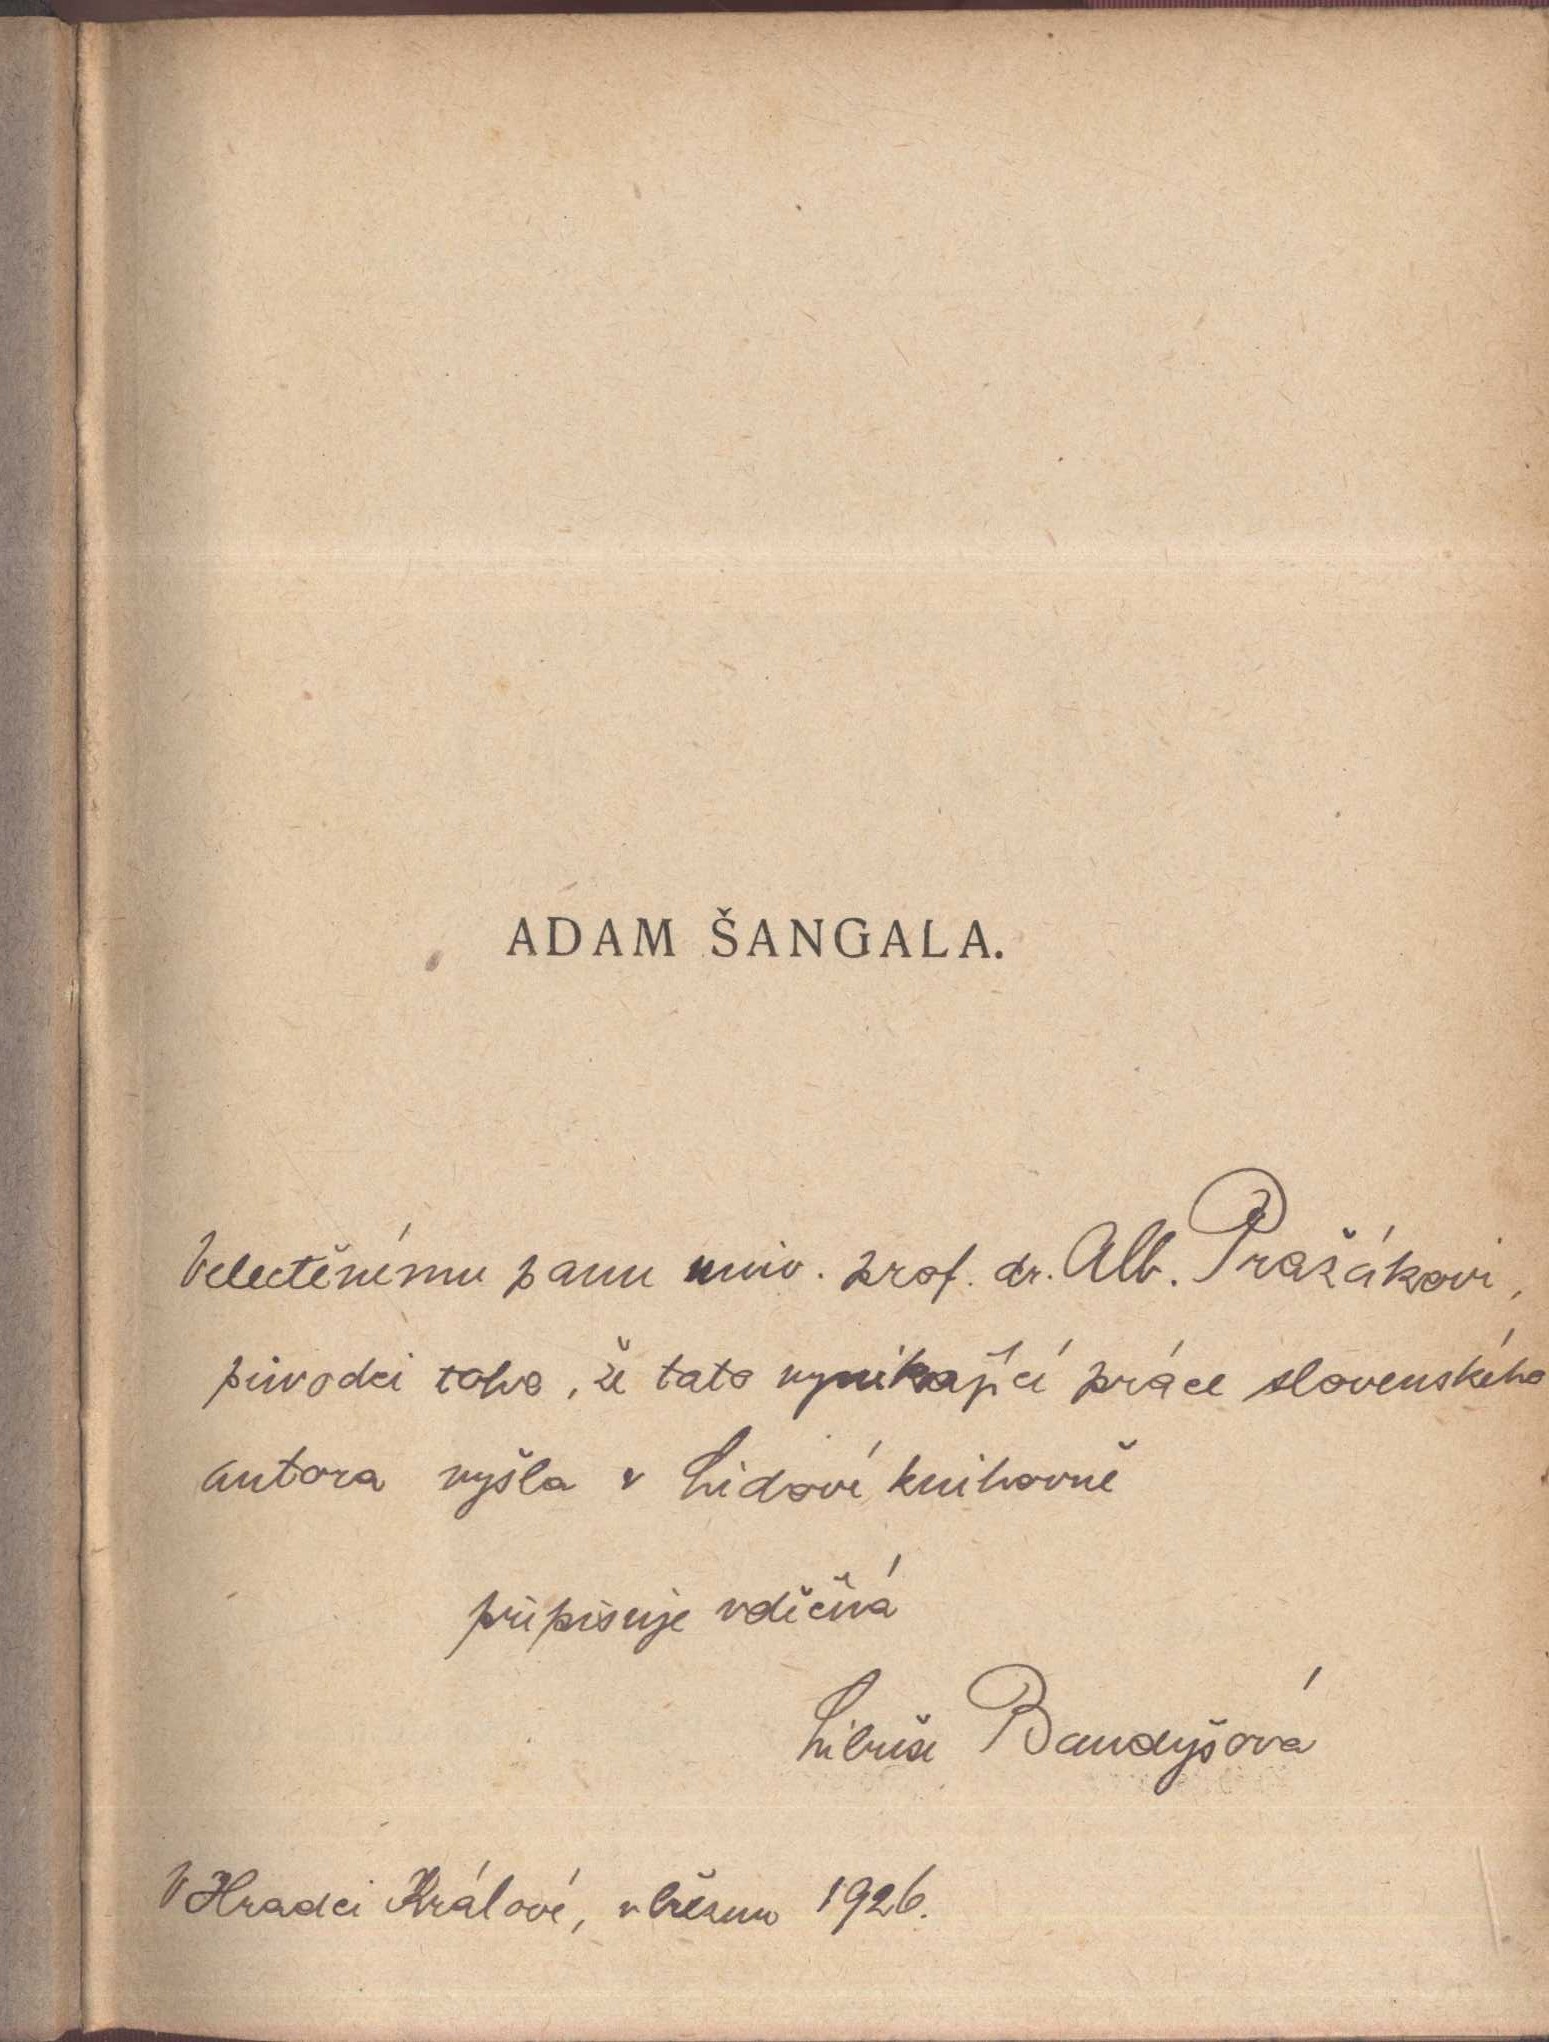 ADAM ŠANGALA.
Velectěnému panu univ. prof. dr. Alb. Pražákovi,
původci toho, že tato vynikající práce slovenského
autora vyšla v Lidové knihovně
připisuje vděčná
Libuše Bandyšová
V Hradci Králové, v březnu 1926.